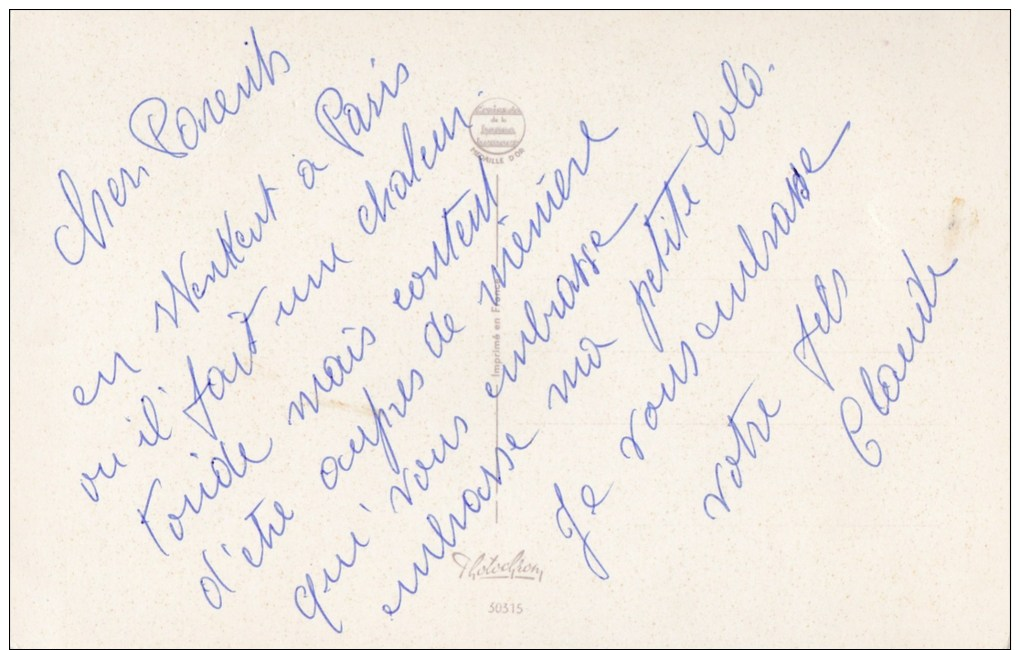 Chers Parents
en Weekent à Paris
ou il fait une chaleur
toride mais content
d'être auprès de mémère
qui vous embrasse
embrasse ma petite Lolo.
Je vous embrasse
votre fils
Claude
MEDAILLE D'OR
Imprimé en France
Photochrom
50315